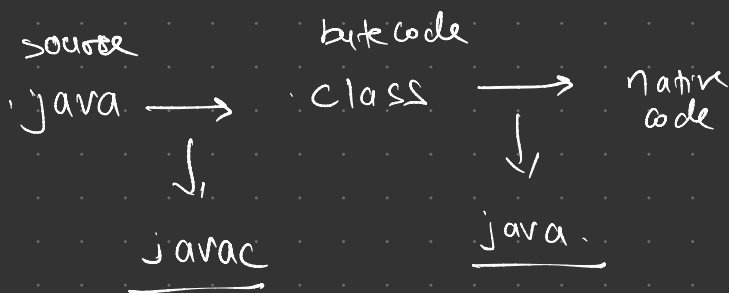 source
bytecode
.java → .class → native
code
javac
java.